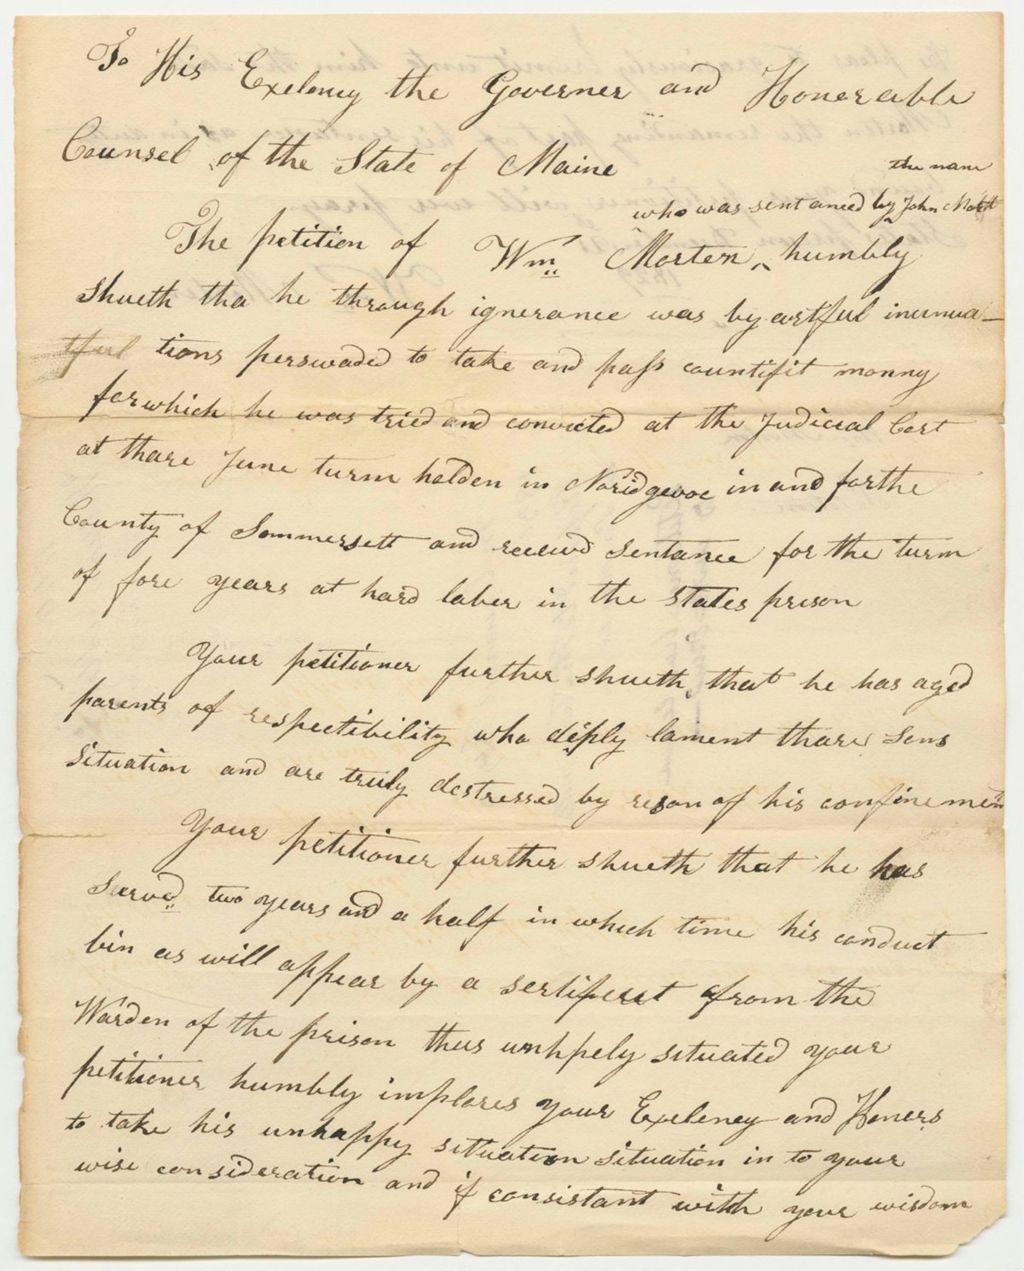 To His Exelency the Governer and Honorable
Counsel of the State of Maine
the name
who was sentanced by John Mott
The petition of Wm Morten ^ humbly
shueth tha he through ignerance was by artful insinua-
tions perswaded to take and pass countifit monny
for which he was tried and convicted at the Judicial Cort
at thare June turm holden in Noridgwoc in and for the
County of Sommersett and receivd sentance for the turm
of fore years at hard laber in the states prison
Your petitioner further shueth that he has aged
parents of respectibility who diply lament thare Sons
situation and are truly destressed by reson of his confinement
Your petitioner further shueth that he has
Servd two years and a half in which time his conduct
bin as will appear by a sertifecet from the
Warden of the prison thus unhpely situated your
petitioner humbly implores your Exeleney and Honers
to take his unhappy situation situation in to your
wise consideration and if consistant with your wisdom